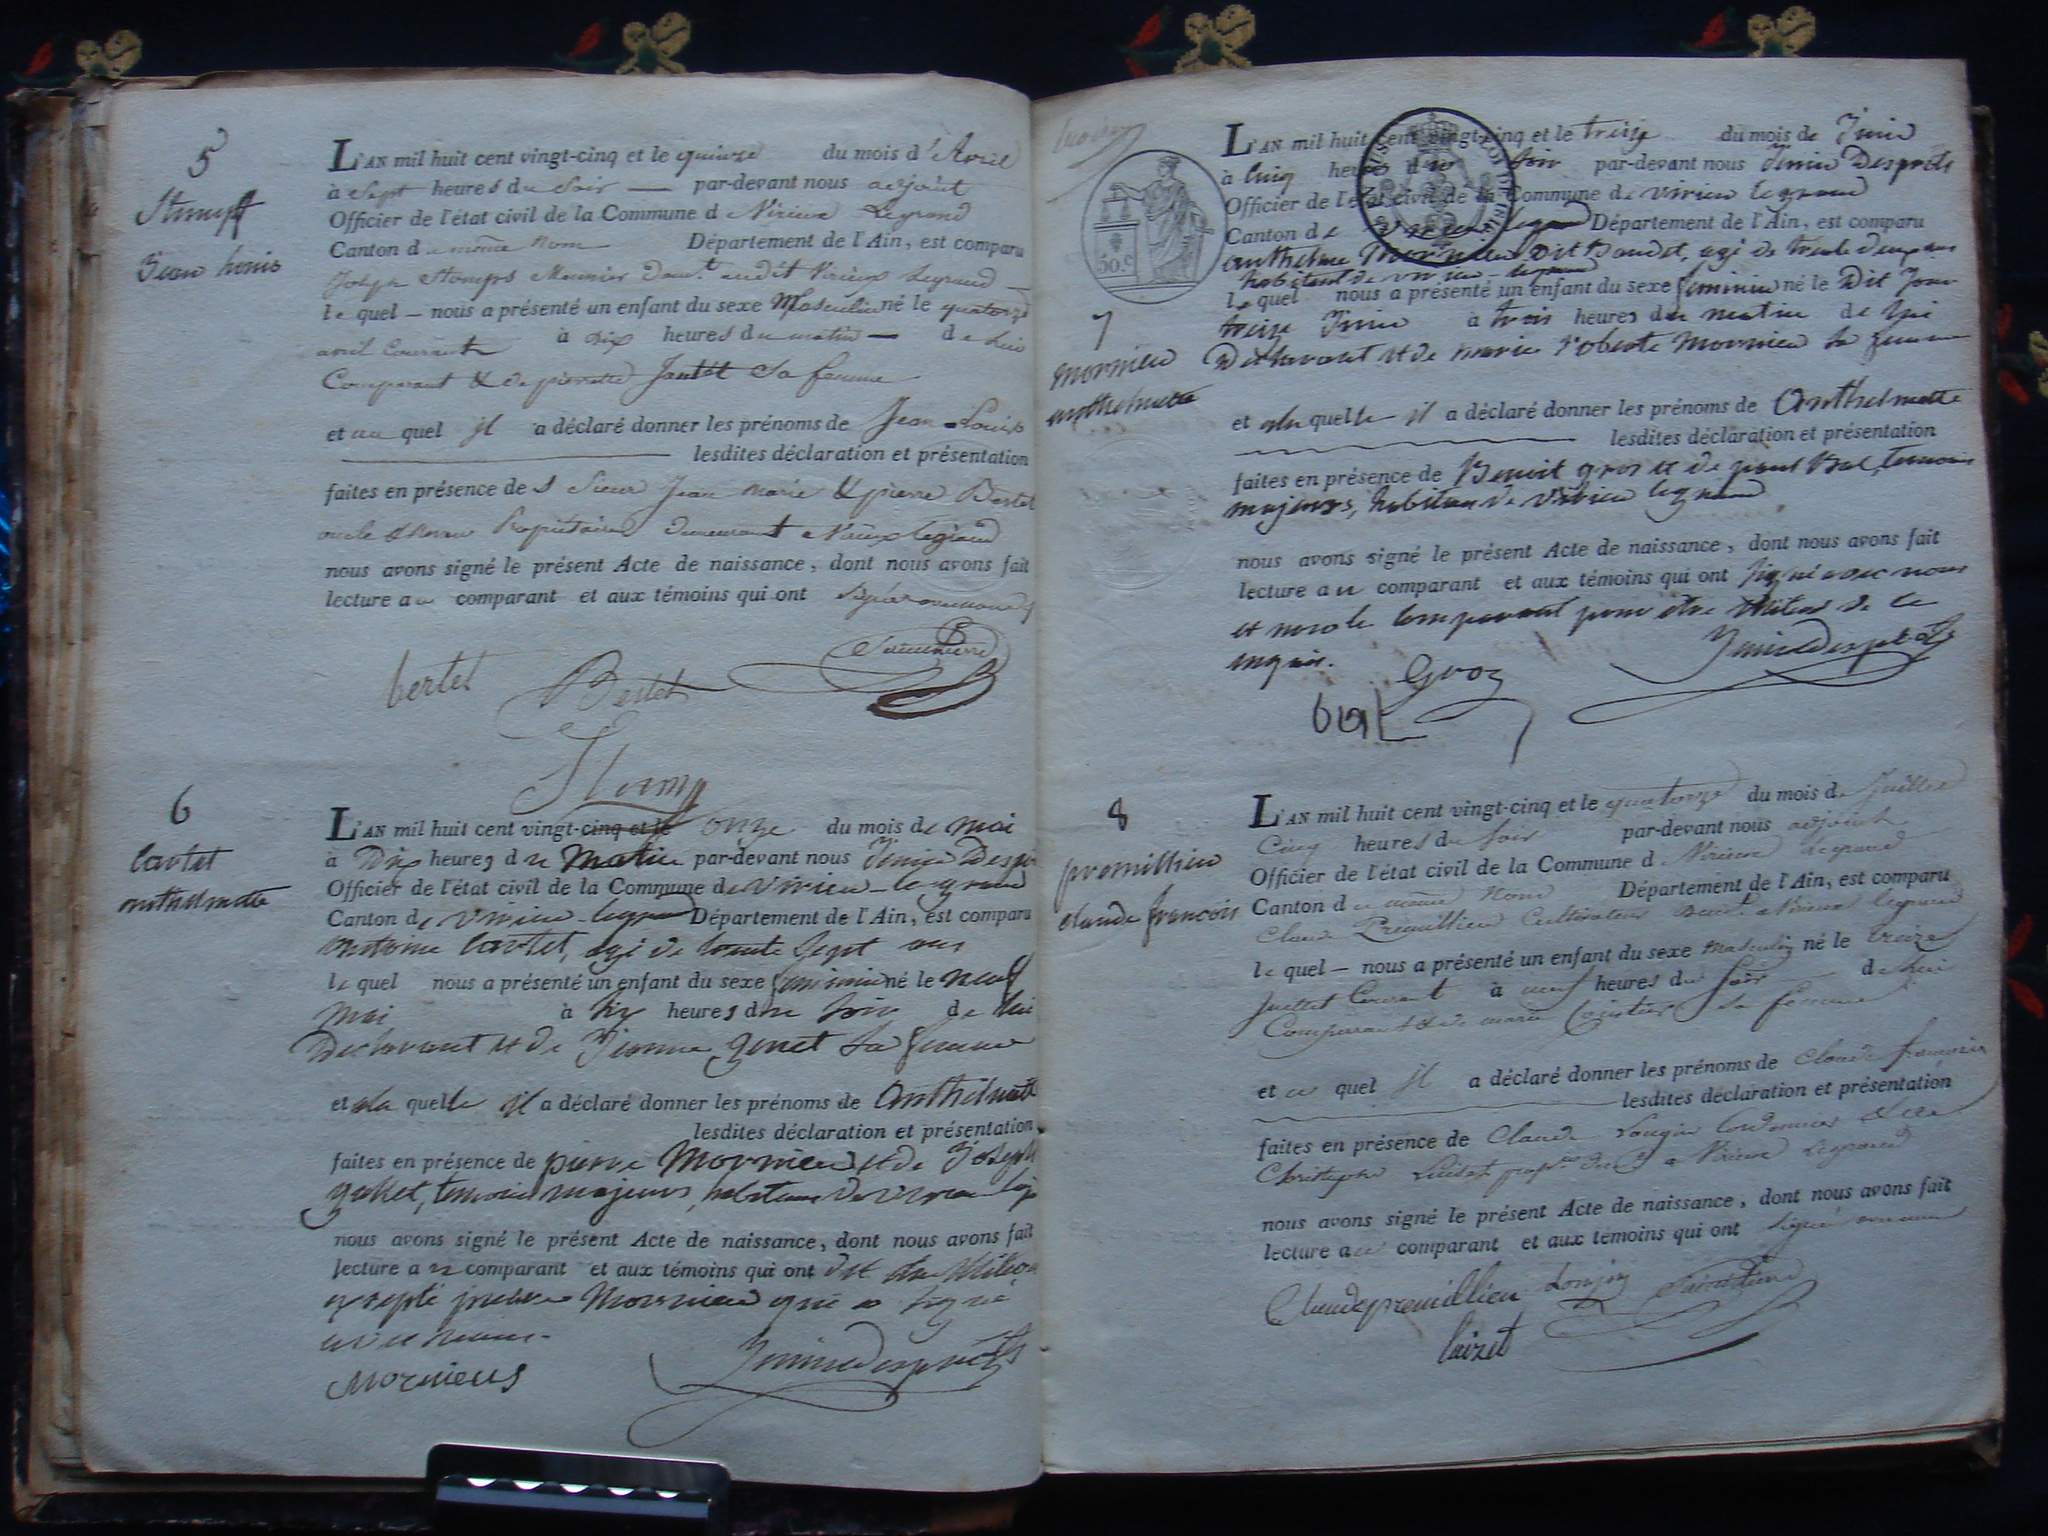 5
Stumpff
Jean Louis
L'AN mil huit cent vingt-cinq et le quinze du mois d'Avril
à Sept heures du Soir — par-devant nous adjoint
Officier de l'état civil de la Commune de Virieux Legrand
Canton de même nom Département de l'Ain, est comparu
Joseph Meunier audit Virieux Legrand
le quel — nous a présenté un enfant du sexe Masculin né le quatorze
avril Courant à dix heures du matin — de lui
Comparant & de pierrette Jantet Sa femme
et au quel il a déclaré donner les prénoms de Jean-Louis
lesdites déclaration et présentation
faites en présence des Sieur Jean Marie & pierre Bertet
oncle & neveu Propriétaires demeurant à Virieux legrand
nous avons signé le présent Acte de naissance, dont nous avons fait
lecture au comparant et aux témoins qui ont
bertet Bertet
6
Cartet
anthelmette
L'AN mil huit cent vingt-cinq et le onze du mois de mai
à Dix heures du Matin par-devant nous
Officier de l'état civil de la Commune de virieu-legrand
Canton de virieu-legrand Département de l'Ain, est comparu
antoine Cartet, agé de trente Sept ans
le quel nous a présenté un enfant du sexe feminin né le neuf
mai à Six heures du Soir de lui
Declarant et de genet Sa femme
et ala quelle il a déclaré donner les prénoms de anthelmette
lesdites déclaration et présentation
faites en présence de pierre Mornieu et de Joseph
gallet, temoins majeurs, habitans de virieu
nous avons signé le présent Acte de naissance, dont nous avons fait
lecture au comparant et aux témoins qui ont dit etre illiteres
excepté pierre Mornieu qui a signé
avec nous.
Mornieus
50.c
7
mornieu
anthelmette
L'AN mil huit cent vingt-cinq et le treize du mois de Juin
à Cinq heures du Soir par-devant nous
Officier de l'état civil de la Commune de virieu legrand
Canton de virieu legrand Département de l'Ain, est comparu
anthelme Mornieu Dit agé de trente deux ans
habitant de virieu-legrand
le quel nous a présenté un enfant du sexe feminin né le Dit Jour
treize Juin à trois heures du matin de lui
Declarant et de marie Mornieu Sa femme
et ala quelle il a déclaré donner les prénoms de Anthelmette
lesdites déclaration et présentation
faites en présence de Benoit gros et de Bal, temoins
majeurs, habitans de virieu legrand
nous avons signé le présent Acte de naissance, dont nous avons fait
lecture au comparant et aux témoins qui ont signé avec nous
et non le Comparant pour etre illitere de ce
enquis.
Groz
bal
8
premillieu
claude francois
L'AN mil huit cent vingt-cinq et le quatorze du mois de Juillet
Cinq heures du Soir par-devant nous adjoint
Officier de l'état civil de la Commune de Virieux Legrand
Canton de même nom Département de l'Ain, est comparu
Claude Premillieu Cultivateur à Virieux legrand
le quel — nous a présenté un enfant du sexe masculin né le treize
Juillet Courant à neuf heures du Soir de lui
Comparant & de marie Sa femme
et au quel il a déclaré donner les prénoms de claude francois
lesdites déclaration et présentation
faites en présence de Claude Cordonnier & de
Christophe à Virieux Legrand
nous avons signé le présent Acte de naissance, dont nous avons fait
lecture au comparant et aux témoins qui ont signé
Claude premillieu